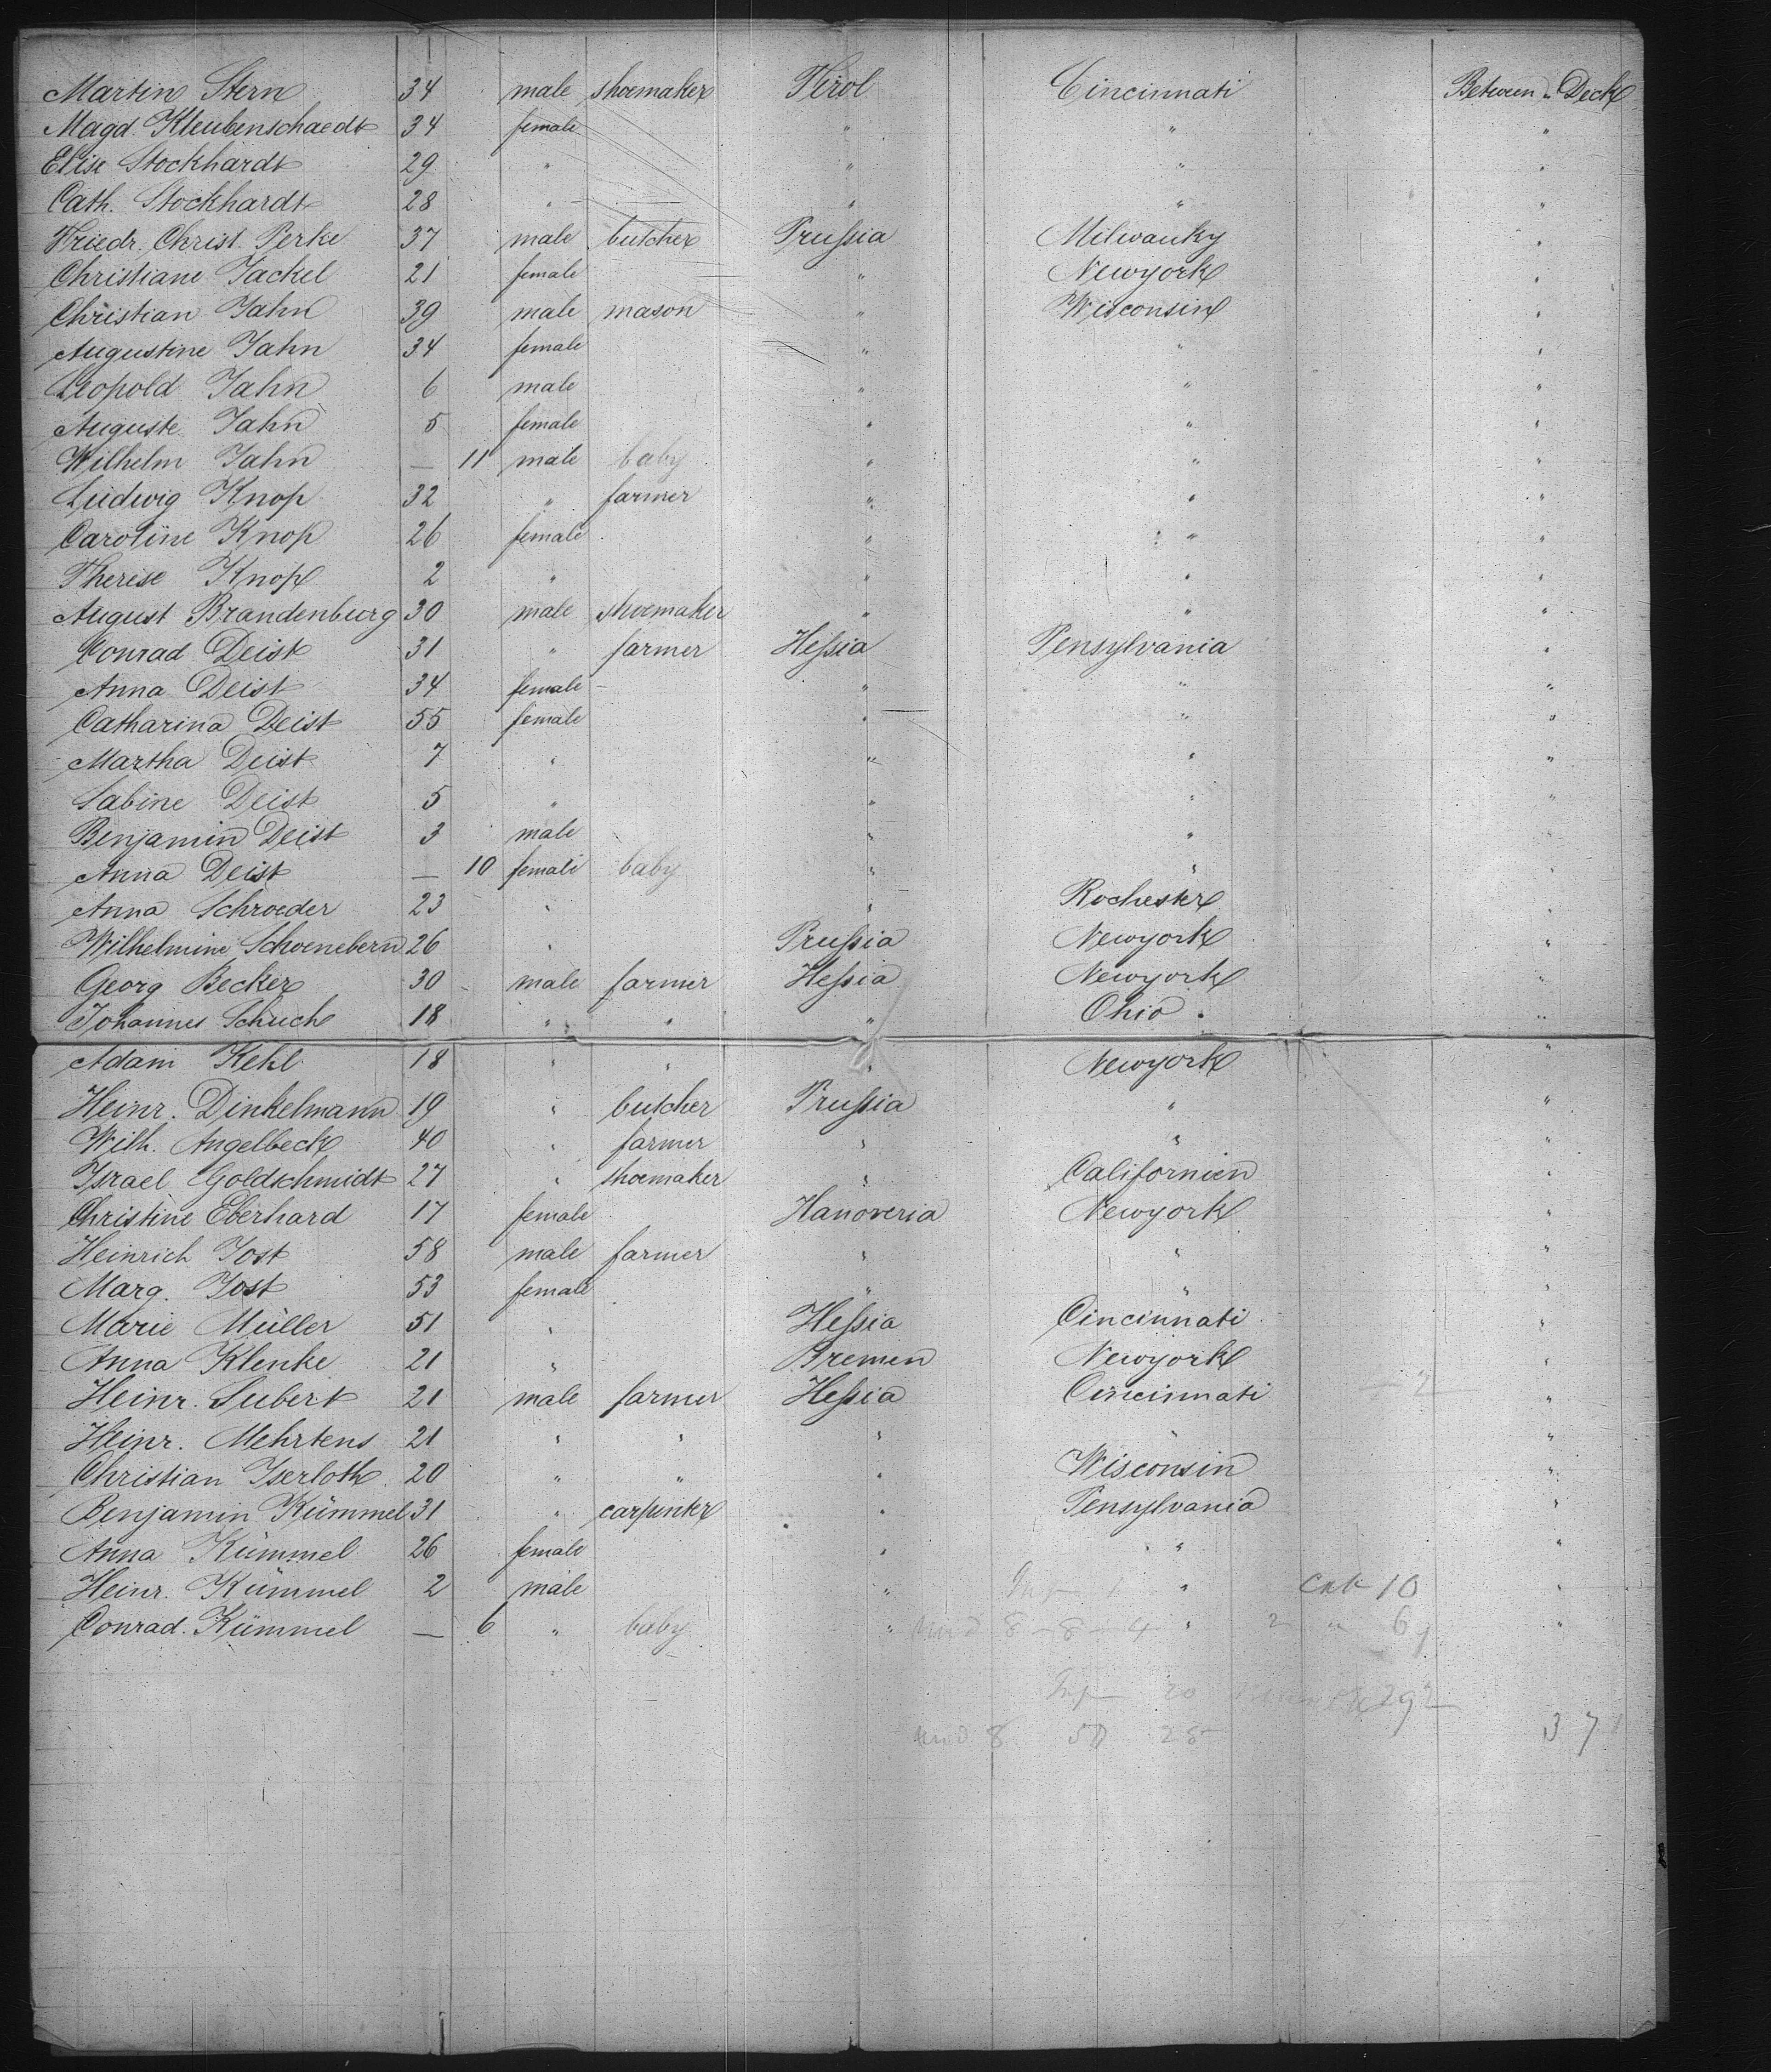 Martin Stern 34 male shoemaker Tirol Cincinnati Between Deck
Magd. Kleubenschaedt 34 female " " "
Elise Stockhardt 29 " " " "
Cath. Stockhardt 28 " " " "
Friedr. Christ. Perke 37 male butcher Prussia Milwauky "
Christiane Jackel 21 female " Newyork "
Christian Jahn 39 male mason " Wisconsin "
Augustine Jahn 34 female " " "
Leopold Jahn 6 male " " "
Auguste Jahn 5 female " " "
Wilhelm Jahn — 11 male baby " " "
Ludwig Knop 32 " farmer " " "
Caroline Knop 26 female " " "
Therese Knop 2 " " " "
August Brandenburg 30 male shoemaker " " "
Conrad Deist 31 " farmer Hessia Pensylvania "
Anna Deist 34 female " " "
Catharina Deist 55 female " " "
Martha Deist 7 " " " "
Sabine Deist 5 " " " "
Benjamin Deist 3 male " " "
Anna Deist — 10 female baby " " "
Anna Schroeder 23 " " Rochester "
Wilhelmine Schoenebern 26 " Prussia Newyork "
Georg Becker 30 male farmer Hessia Newyork "
Johannes Schuch 18 " " " Ohio "
Adam Kehl 18 " " " Newyork "
Heinr. Dinkelmann 19 " butcher Prussia " "
Wilh. Angelbeck 40 " farmer " " "
Israel Goldschmidt 27 " shoemaker " Californien "
Christine Eberhard 17 female Hanoveria Newyork "
Heinrich Jost 58 male farmer " " "
Marg. Jost 53 female " " "
Marie Müller 51 " Hessia Cincinnati "
Anna Klenke 21 " Bremen Newyork "
Heinr. Subert 21 male farmer Hessia Cincinnati "
Heinr. Mehrtens 21 " " " " "
Christian Iserloth 20 " " " Wisconsin "
Benjamin Kümmel 31 " carpenter " Pensylvania "
Anna Kümmel 26 female " " "
Heinr. Kümmel 2 male " " Cab 10 "
Conrad Kümmel — 6 " baby " 8 - 8 - 4 " 2 " 69 "
20 292
8 50 25 371